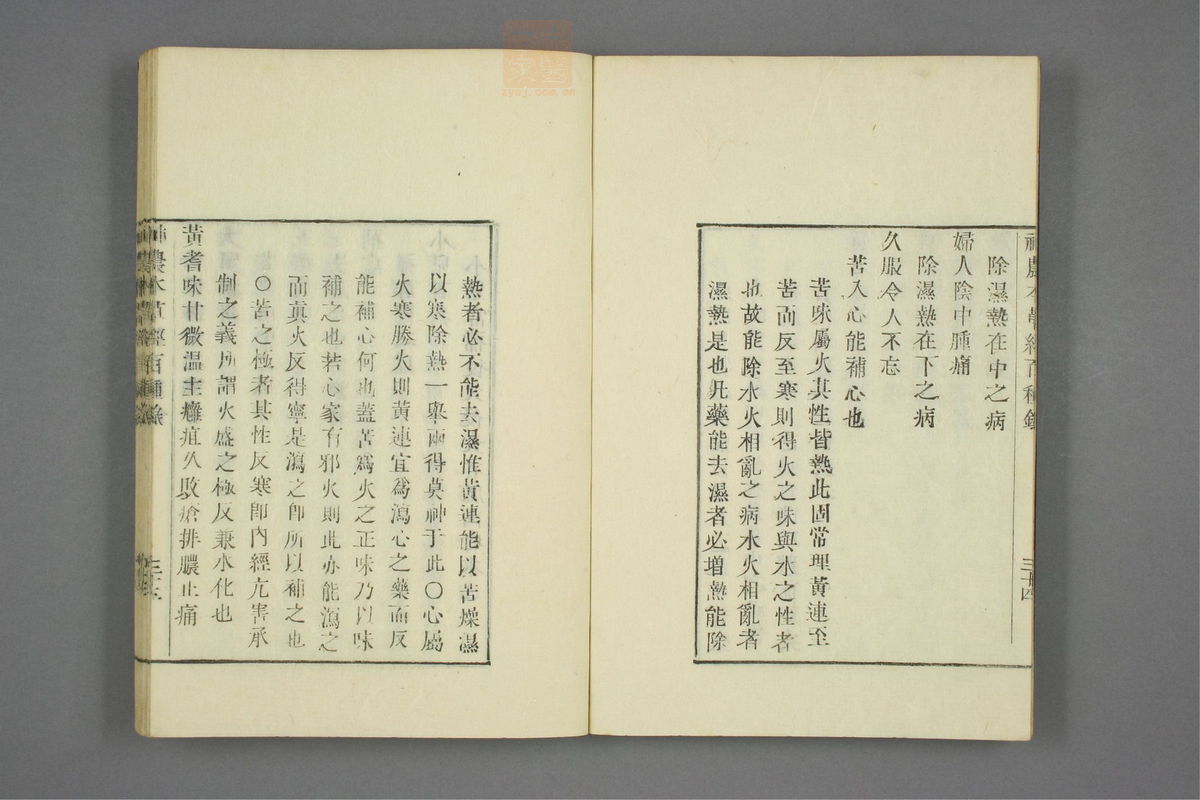 神農本草經百種錄
三十四
除濕熱在中之病
婦人陰中腫痛
除濕熱在下之病
久服令人不忘
苦入心能補心也
苦味屬火其性皆熱此固常理黃連至
苦而反至寒則得火之味與水之性者
也故能除水火相亂之病水火相亂者
濕熱是也凡藥能去濕者必增熱能除
熱者必不能去濕惟黃連能以苦燥濕
以寒除熱一舉兩得莫神于此〇心屬
火寒勝火則黃連宜爲瀉心之藥而反
能補心何也蓋苦爲火之正味乃以味
補之也若心家有邪火則此亦能瀉之
而眞火反得寧是瀉之卽所以補之也
〇苦之極者其性反寒卽內經亢害承
制之義所謂火盛之極反兼水化也
黃耆味甘微溫主癰疽久敗瘡排膿止痛
神農本草經百種錄
三十五
zysj.com.cn